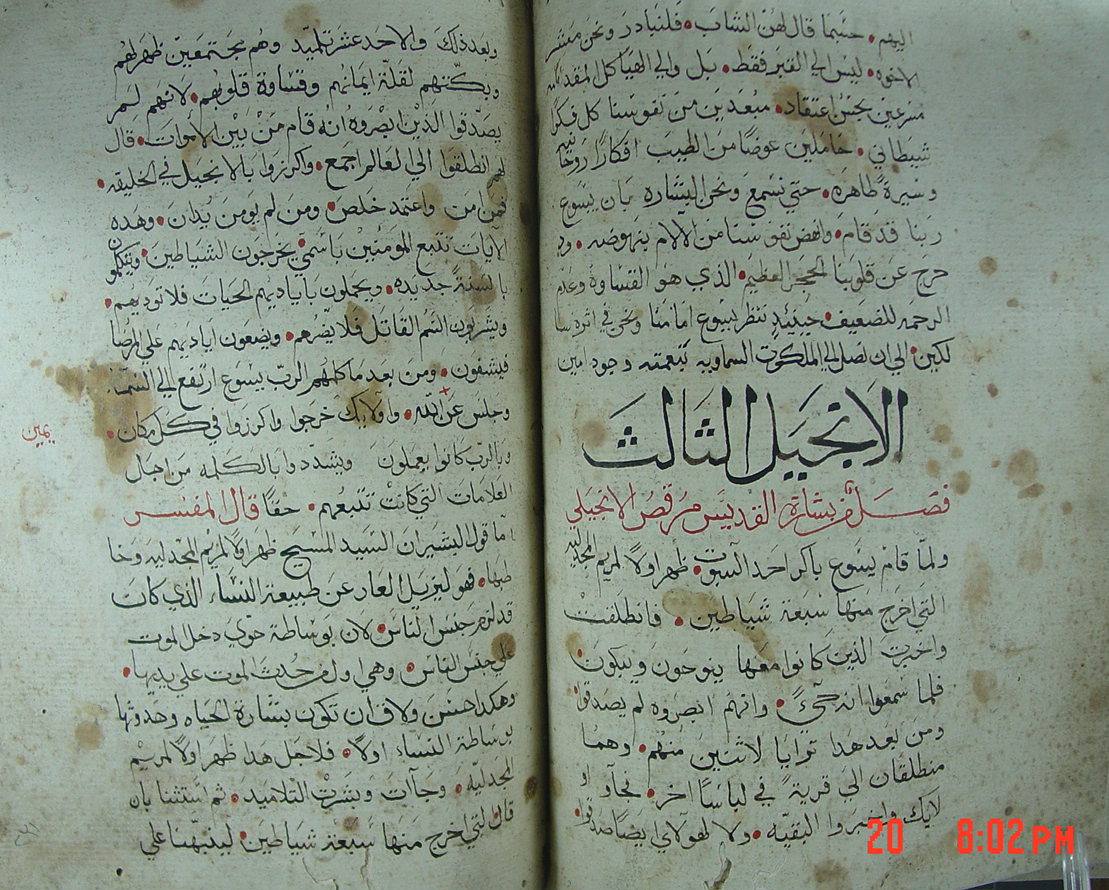 اليهم • حسبما قال لهن الشاب • فلنبادر ونحن معشر
الاخوه • ليس الي القبر فقط • بل والي الهياكل المقدسه
مسرعين بحسن اعتقاد • مبعدين من نفوسنا كل فكر
شيطاني • حاملين عوضا من الطيب افكارا روحانيه
وسيرة طاهره • حتي نسمع ونحن البشاره بان يسوع
ربنا قد قام • وانهض نفوسنا من الالام بنهوضه •
حرج عن قلوبنا الحجر العظيم • الذي هو القساوة وعدم
الرحمه للضعيف • حينيذ ننظر يسوع امامنا ونحن في اثره
لكين • الي ان نصل الي الملكوت السماويه بنعمته وجوده امين
الانجيل الثالث
فصل من بشارة القديس مرقص الانجيلي
ولما قام يسوع باكر احد السبوت • ظهر اولا لمريم المجدليه
التي اخرج منها سبعة شياطين • فانطلقت
واخبرت الذين كانوا معها ينوحون ويبكون •
فلما سمعوا انه حي • وانهم ابصروه لم يصدقوا
ومن بعد هدا ترايا لاثنين منهم • وهما
منطلقان الي قرية في لباسا اخر • فجآو او
لايك واخبروا البقيه • ولا لهولاي ايضا صدقوا •
20 8:02 PM
وبعد ذلك والاحد عشر تلميد وهم مجتمعين ظهر لهم
وبكتهم لقلة ايمانهم وقساوة قلوبهم • لانهم لم
يصدقوا الذين ابصروه انه قام من بين الاموات • قال
لهم انطلقوا الي العالم اجمع • واكرزوا بالانجيل في الخليقه •
فمن امن واعتمد خلص • ومن لم يومن يدان • وهده
الايات تتبع المومنين باسمي يخرجون الشياطين • ويتكلمون
بالسنة جديده • ويحملون باياديهم الحيات فلا توديهم •
ويشربون السم القاتل فلا يضرهم • ويضعون اياديهم علي المرضا
فيشفون • ومن بعد ما كلمهم الرب يسوع ارتفع الي السما •
وجلس عن الله • واولايك خرجوا واكرزوا في كل مكان •
يمين
وبالرب كانوا يعملون ويشددوا بالكلمه من اجل
العلامات التي كانت تتبعهم • حقا قال المفسر
اما قول البشير ان السيد المسيح ظهر اولا لمريم المجدليه وخا
طبها • فهو ليزيل العار عن طبيعة النساء الذي كان
قد لزم جنس الناس • لان بوساطة حوي دخل الموت
علي جنس الناس • وهي اول من حدث الموت علي يديها •
وهكدا حسن ولاق ان تكون بشارة الحياه وحدوثها
بوساطة النساء اولا • فلاجل هدا ظهر اولا لمريم
المجدليه • وجآت وبشرت التلاميد • ثم استثنا بان
قال التي اخرج منها سبعة شياطين • لينبهنا علي